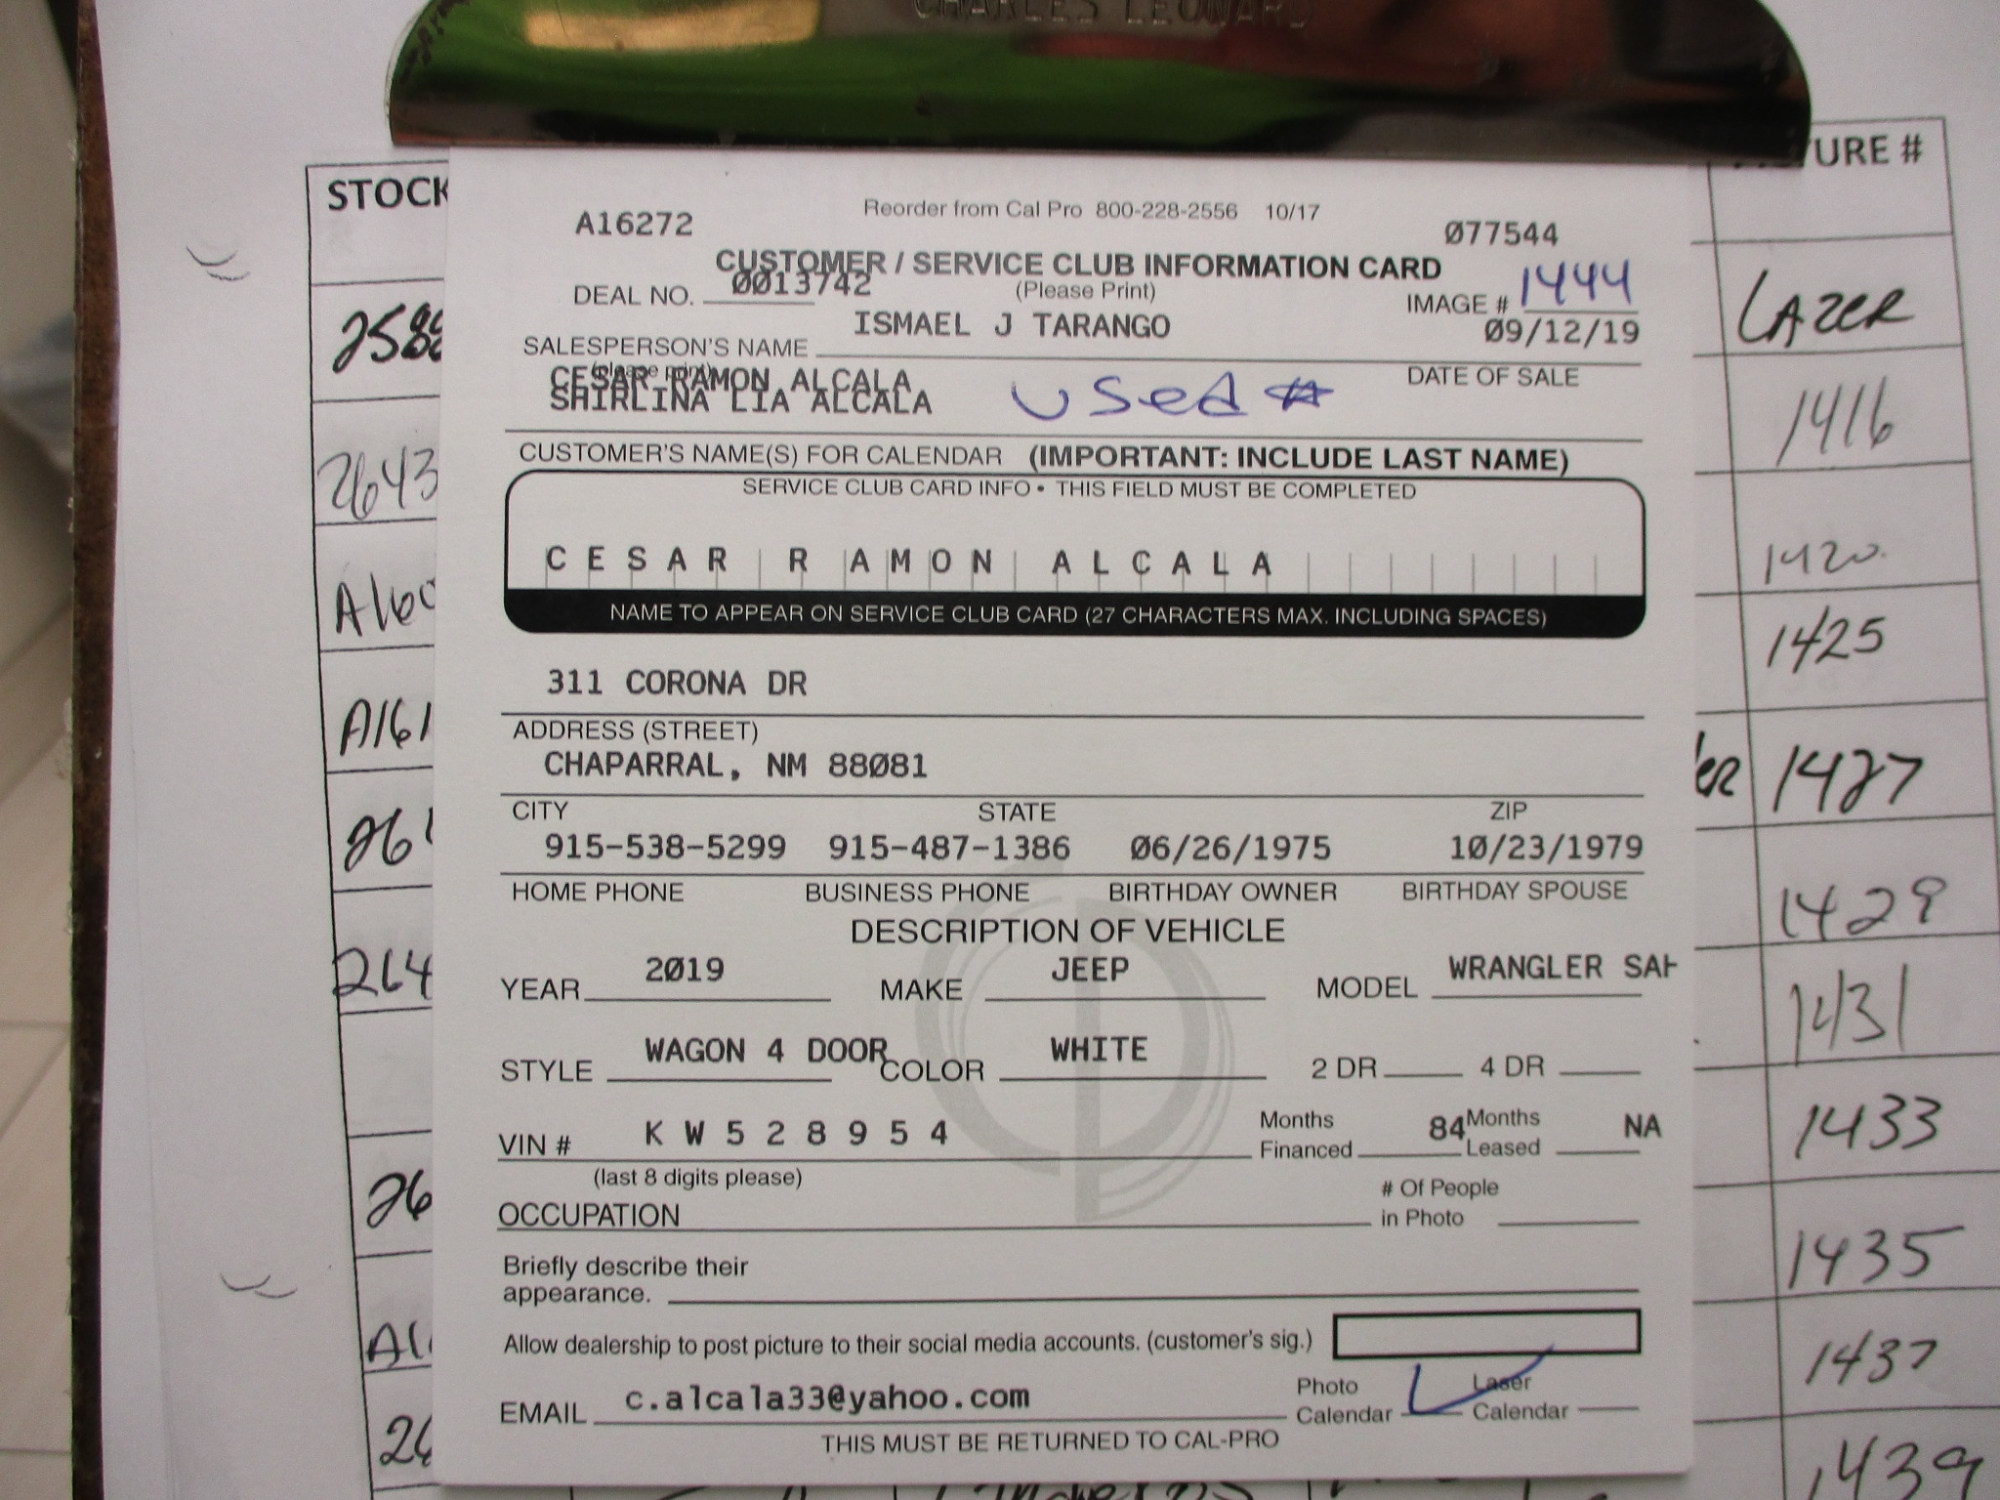 CHARLES LEONARD
STOCK
URE #
A16272
Reorder from Cal Pro 800-228-2556 10/17
077544
CUSTOMER / SERVICE CLUB INFORMATION CARD
DEAL NO. 0013742
(Please Print)
IMAGE # 1444
ISMAEL J TARANGO
09/12/19
SALESPERSON'S NAME
(please print)
DATE OF SALE
CESAR RAMON ALCALA
SHIRLINA LIA ALCALA
Used #
CUSTOMER'S NAME(S) FOR CALENDAR (IMPORTANT: INCLUDE LAST NAME)
SERVICE CLUB CARD INFO • THIS FIELD MUST BE COMPLETED
CESAR RAMON ALCALA
NAME TO APPEAR ON SERVICE CLUB CARD (27 CHARACTERS MAX. INCLUDING SPACES)
311 CORONA DR
ADDRESS (STREET)
CHAPARRAL, NM 88081
CITY STATE ZIP
915-538-5299 915-487-1386 06/26/1975 10/23/1979
HOME PHONE BUSINESS PHONE BIRTHDAY OWNER BIRTHDAY SPOUSE
DESCRIPTION OF VEHICLE
YEAR 2019 MAKE JEEP MODEL WRANGLER SAH
STYLE WAGON 4 DOOR COLOR WHITE 2 DR 4 DR
VIN # K W 5 2 8 9 5 4 Months Financed 84 Months Leased NA
(last 8 digits please)
OCCUPATION # Of People in Photo
Briefly describe their
appearance.
Allow dealership to post picture to their social media accounts. (customer's sig.)
EMAIL c.alcala33@yahoo.com Photo Calendar Laser Calendar
THIS MUST BE RETURNED TO CAL-PRO
2643
A160
A161
261
264
26
A1
26
LAZER
1416
1420.
1425
1427
1429
1431
1433
1435
1437
1439